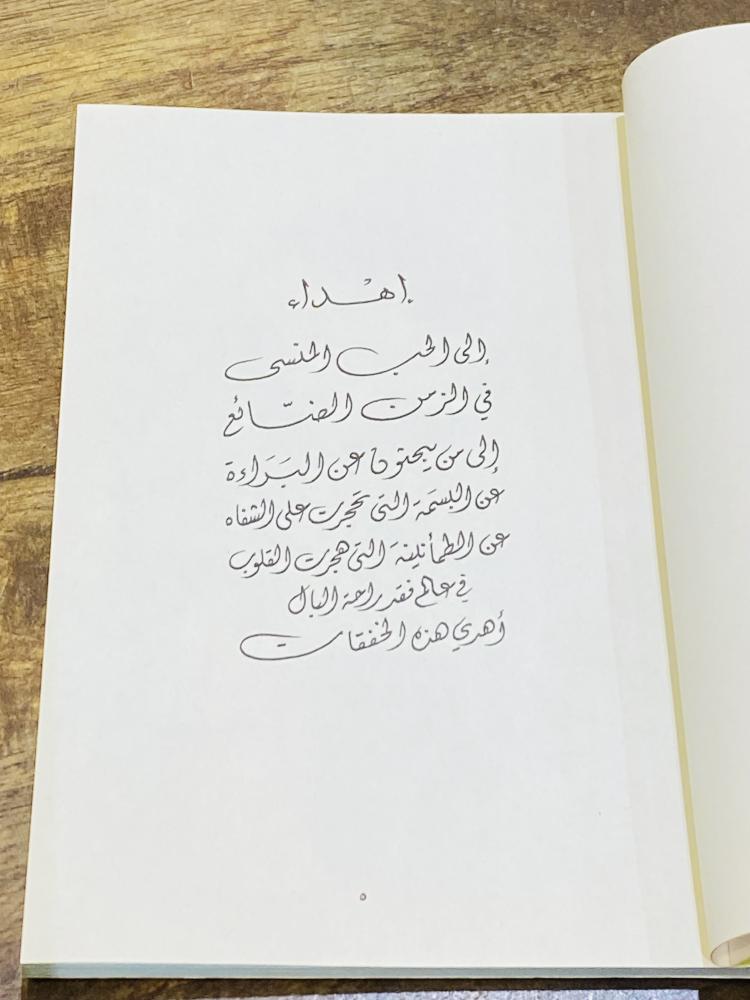 إهْداء
إلى الحب المنسى
في الزمن الضَّائع
إلى من يبحثون عن البَرَاءة
عن البسمَة التى تحجرت على الشفاه
عن الطمأنينة التى هجرت القلوب
في عالم فقد راحة البال
أهدي هذه الخفقات
٥